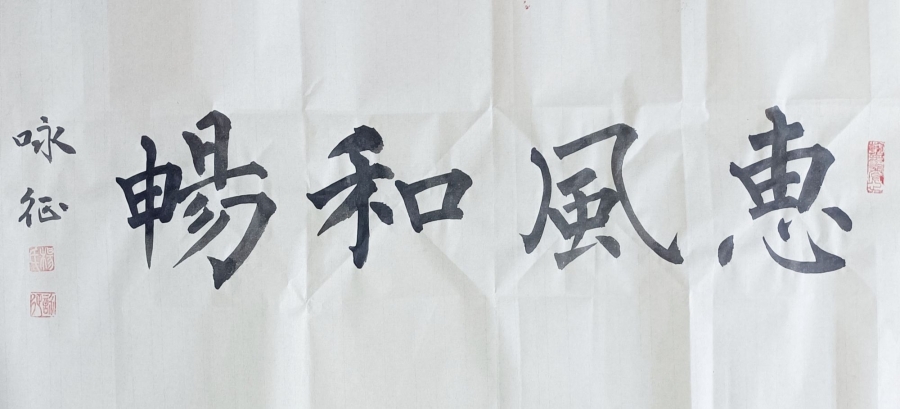 惠風和暢
咏征